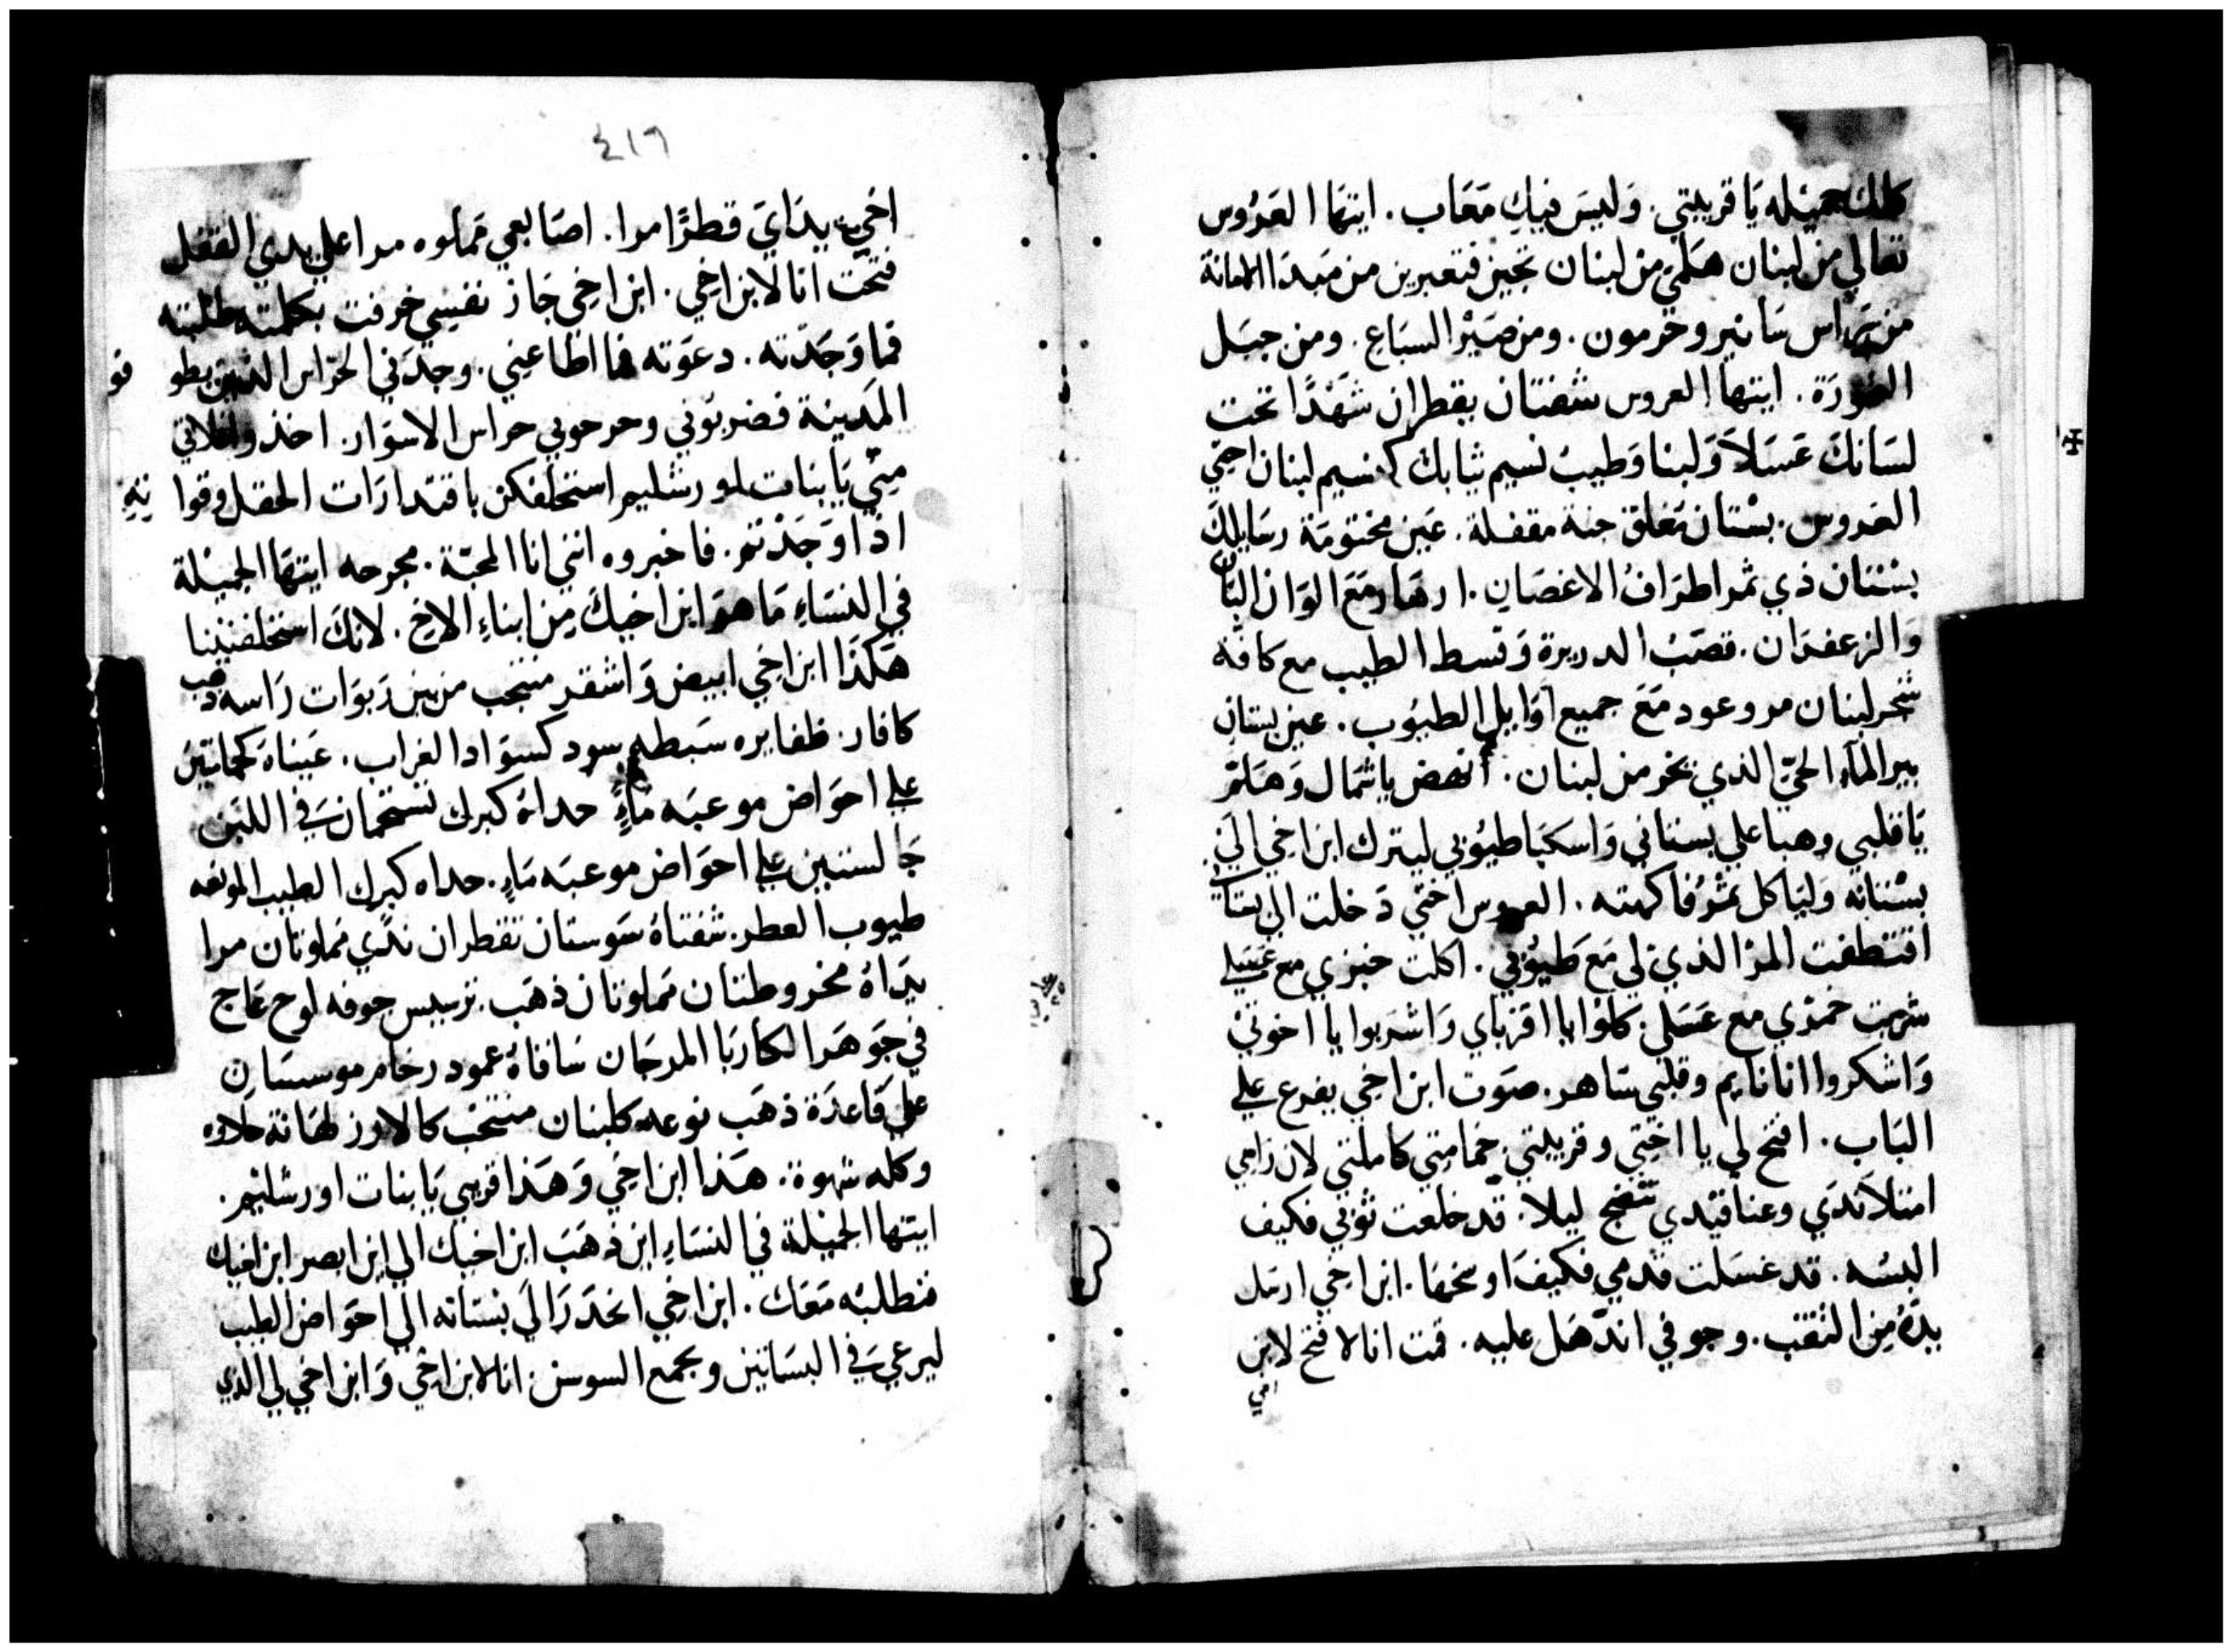 كلك جميله يا قريبتي. وليس فيك معاب. ايتها العروس
تعالي من لبنان هلمي من لبنان تجيين فتعبرين من مبدا الامانة
من راس سانير وحرمون. ومن صير السباع. ومن جبل
النمورة. ايتها العروس شفتان يقطران شهدًا تحت
لسانك عسلاً ولبنا وطيب نسيم ثيابك كنسيم لبنان اختي
العروس. بستان مغلق جنة مقفلة. عين مختومة رسايلك
بستان ذي ثمر اطراف الاغصان. ازهار مع الوان البان
والزعفران. قصب الدريرة وقسط الطيب مع كافة
شجر لبنان مر وعود مع جميع اوايل الطيوب. عين بستان
بير المآء الحيّ الذي يخر من لبنان. أنهض يا شمال وهلم
يا قبلي وهبا علي بستاني واسكبا طيوبي لينزل ابن اخي الي
بستانه ولياكل ثمر فاكهته. العروس اختي دخلت الي بستا
اقتطفت المر الذي لي مع طيوبي. اكلت خبزي مع عسلي
شربت خمري مع عسلي. كلوا يا اقرباي واشربوا يا اخوتي
واشكروا انا نايم وقلبي ساهر. صوت ابن اخي يقرع علي
الباب. افتح لي يا اختي وقريبتي حمامتي كاملتي لان راسي
امتلا ندي وعناقيدي ليلا. قد خلعت ثوبي فكيف
البسه. قد غسلت قدمي فكيف اوسخها. ابن اخي ارسل
يده من النقب. وجوفي اندهل عليه. قمت انا لافتح لابن
اخي
٤١٦
اخي يداي قطرًا مرا. اصابعي مملوه مرا علي يدي القفل
فتحت انا لابن اخي. ابن اخي جاز نفسي خرفت بكلمته طلبته
فما وجدته. دعوته فما اطاعني. وجدني الحراس الذين يطو فو
المدينة فضربوني وجرحوني حراس الاسوار. اخذوا
مني يا بنات اورشليم استحلفكن باقتدارات الحقل وقوا
اذا وجدتم. فاخبروه انني انا المحبة. مجرحه ايتها الجميلة
في النساء ما هو ابن اخيك من ابناء الاخ. لانك استحلفتينا
هكذا ابن اخي ابيض واشقر منتجب من بين ربوات راسه ذهب
كافاز. ظفايره سبطه سود كسواد الغراب. عيناه كحمامتين
علي احواض موعبه ماءٍ تستحمان في اللبن
جالستين علي احواض موعبه ماء. الطيب
طيوب العطر. شفتاه سوستان تقطران ندي مملوتان مرا
يداه مخروطتان مملوتان ذهب. ترسيس جوفه لوح عاج
في جوهر الكاربا المرجان ساقاه عمود رخام موسسان
علي قاعدة ذهب نوعه كلبنان منتخب كالارز لهاته حلاوه
وكله شهوة. هذا ابن اخي وهذا قريبي يا بنات اورشليم.
ايتها الجميلة في النساء اين ذهب ابن اخيك الي اين ابصر ابن اخيك
فنطلبه معك. ابن اخي انحدر الي بستانه الي احواض الطيب
ليرعي في البساتين ويجمع السوسن. انا لابن اخي وابن اخي لي الذي